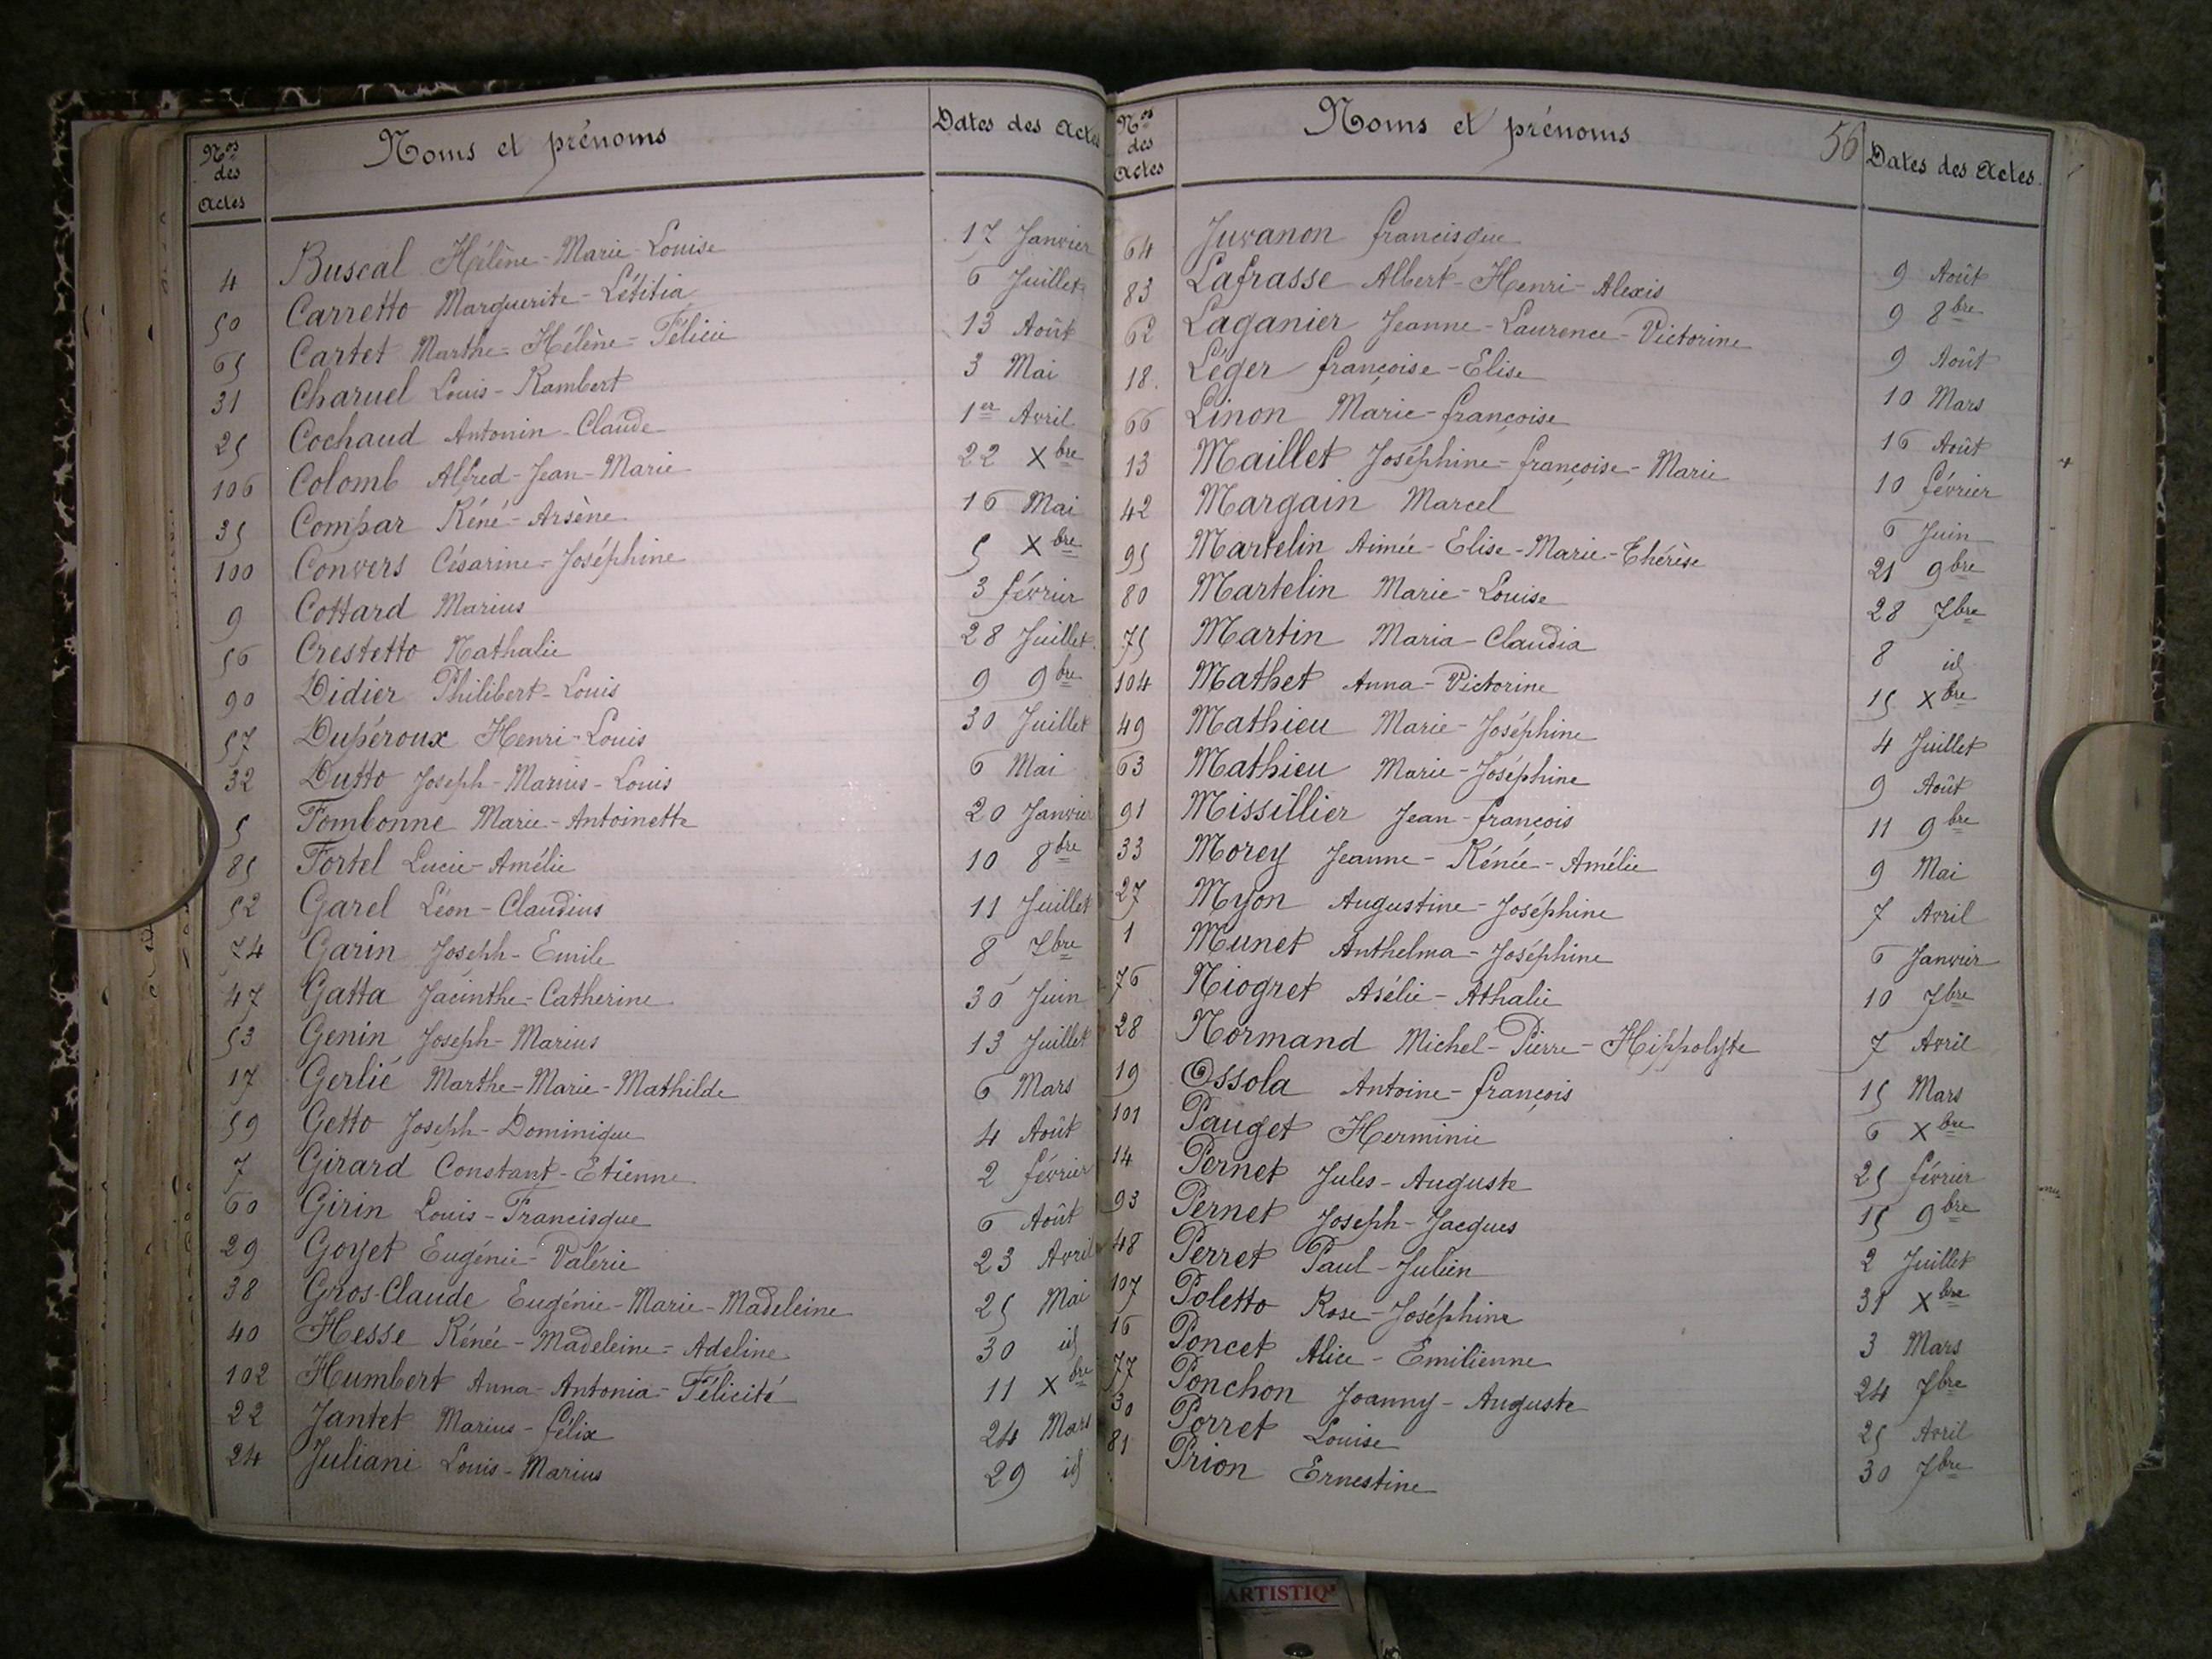 Nos des Actes Noms et prénoms Dates des Actes
4 Buscal Hélène-Marie-Louise 17 Janvier
50 Carretto Marguerite-Létitia 6 Juillet
65 Cartet Marthe-Hélène-Félicie 13 Août
31 Charuel Louis-Rambert 3 Mai
25 Cochaud Antonin-Claude 1er Avril
106 Colomb Alfred-Jean-Marie 22 Xbre
35 Compar Réné-Arsène 16 Mai
100 Convers Césarine-Joséphine 5 Xbre
9 Cottard Marius 3 février
56 Crestetto Nathalie 28 Juillet
90 Didier Philibert-Louis 9 9bre
57 Dupéroux Henri-Louis 30 Juillet
32 Dutto Joseph-Marius-Louis 6 Mai
5 Fombonne Marie-Antoinette 20 Janvier
85 Fortel Lucie-Amélie 10 8bre
52 Garel Léon-Claudius 11 Juillet
74 Garin Joseph-Emile 8 7bre
47 Gatta Jacinthe-Catherine 30 Juin
53 Genin Joseph-Marius 13 Juillet
17 Gerlié Marthe-Marie-Mathilde 6 Mars
59 Getto Joseph-Dominique 4 Août
7 Girard Constant-Etienne 2 février
60 Girin Louis-Francisque 6 Août
29 Goyet Eugénie-Valérie 23 Avril
38 Gros-Claude Eugénie-Marie-Madeleine 25 Mai
40 Hesse Rénée-Madeleine-Adeline 30 id
102 Humbert Anna-Antonia-Félicité 11 Xbre
22 Jantet Marius-félix 24 Mars
24 Juliani Louis-Marius 29 id
Nos des Actes Noms et prénoms 56 Dates des Actes.
64 Juvanon francisque 9 Août
83 Lafrasse Albert-Henri-Alexis 9 8bre
62 Laganier Jeanne-Laurence-Victorine 9 Août
18. Léger françoise-Elise 10 Mars
66 Linon Marie-françoise 16 Août
13 Maillet Joséphine-françoise-Marie 10 février
42 Margain Marcel 6 Juin
95 Martelin Aimée-Elise-Marie-Thérèse 21 9bre
80 Martelin Marie-Louise 28 7bre
75 Martin Maria-Claudia 8 id
104 Mathet Anna-Victorine 15 Xbre
49 Mathieu Marie-Joséphine 4 Juillet
63 Mathieu Marie-Joséphine 9 Août
91 Missillier Jean-françois 11 9bre
33 Morey Jeanne-Rénée-Amélie 9 Mai
27 Myon Augustine-Joséphine 7 Avril
1 Munet Anthelma-Joséphine 6 Janvier
76 Niogret Asélie-Athalie 10 7bre
28 Normand Michel-Pierre-Hippolyte 7 Avril
19 Ossola Antoine-françois 15 Mars
101 Pauget Herminie 6 Xbre
14 Pernet Jules-Auguste 25 février
93 Pernet Joseph-Jacques 15 9bre
48 Perret Paul-Julien 2 Juillet
107 Poletto Rose-Joséphine 31 Xbre
16 Poncet Alice-Emilienne 3 Mars
77 Ponchon Joanny-Auguste 24 7bre
30 Porret Louise 25 Avril
81 Prion Ernestine 30 7bre